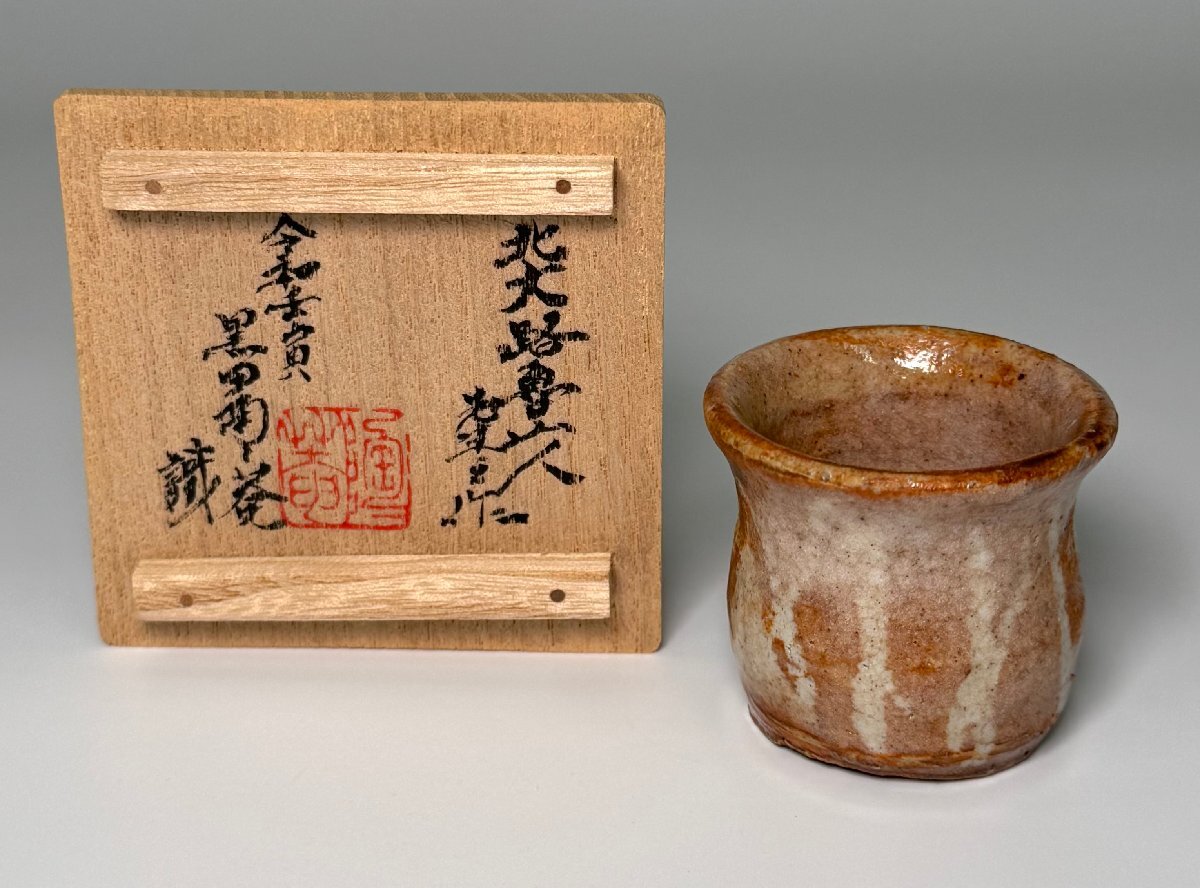 北大路魯山人
作
令和壬寅
黒田陶々菴
識
陶々菴